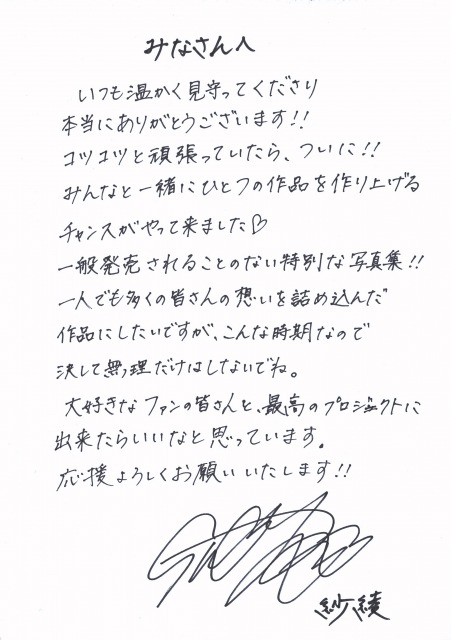 みなさんへ
いつも温かく見守ってくださり
本当にありがとうございます!!
コツコツと頑張っていたら、ついに!!
みんなと一緒にひとつの作品を作り上げる
チャンスがやって来ました♡
一般発売されることのない特別な写真集!!
一人でも多くの皆さんの想いを詰め込んだ
作品にしたいですが、こんな時期なので
決して無理だけはしないでね。
大好きなファンの皆さんと、最高のプロジェクトに
出来たらいいなと思っています。
応援よろしくお願いいたします!!
紗綾